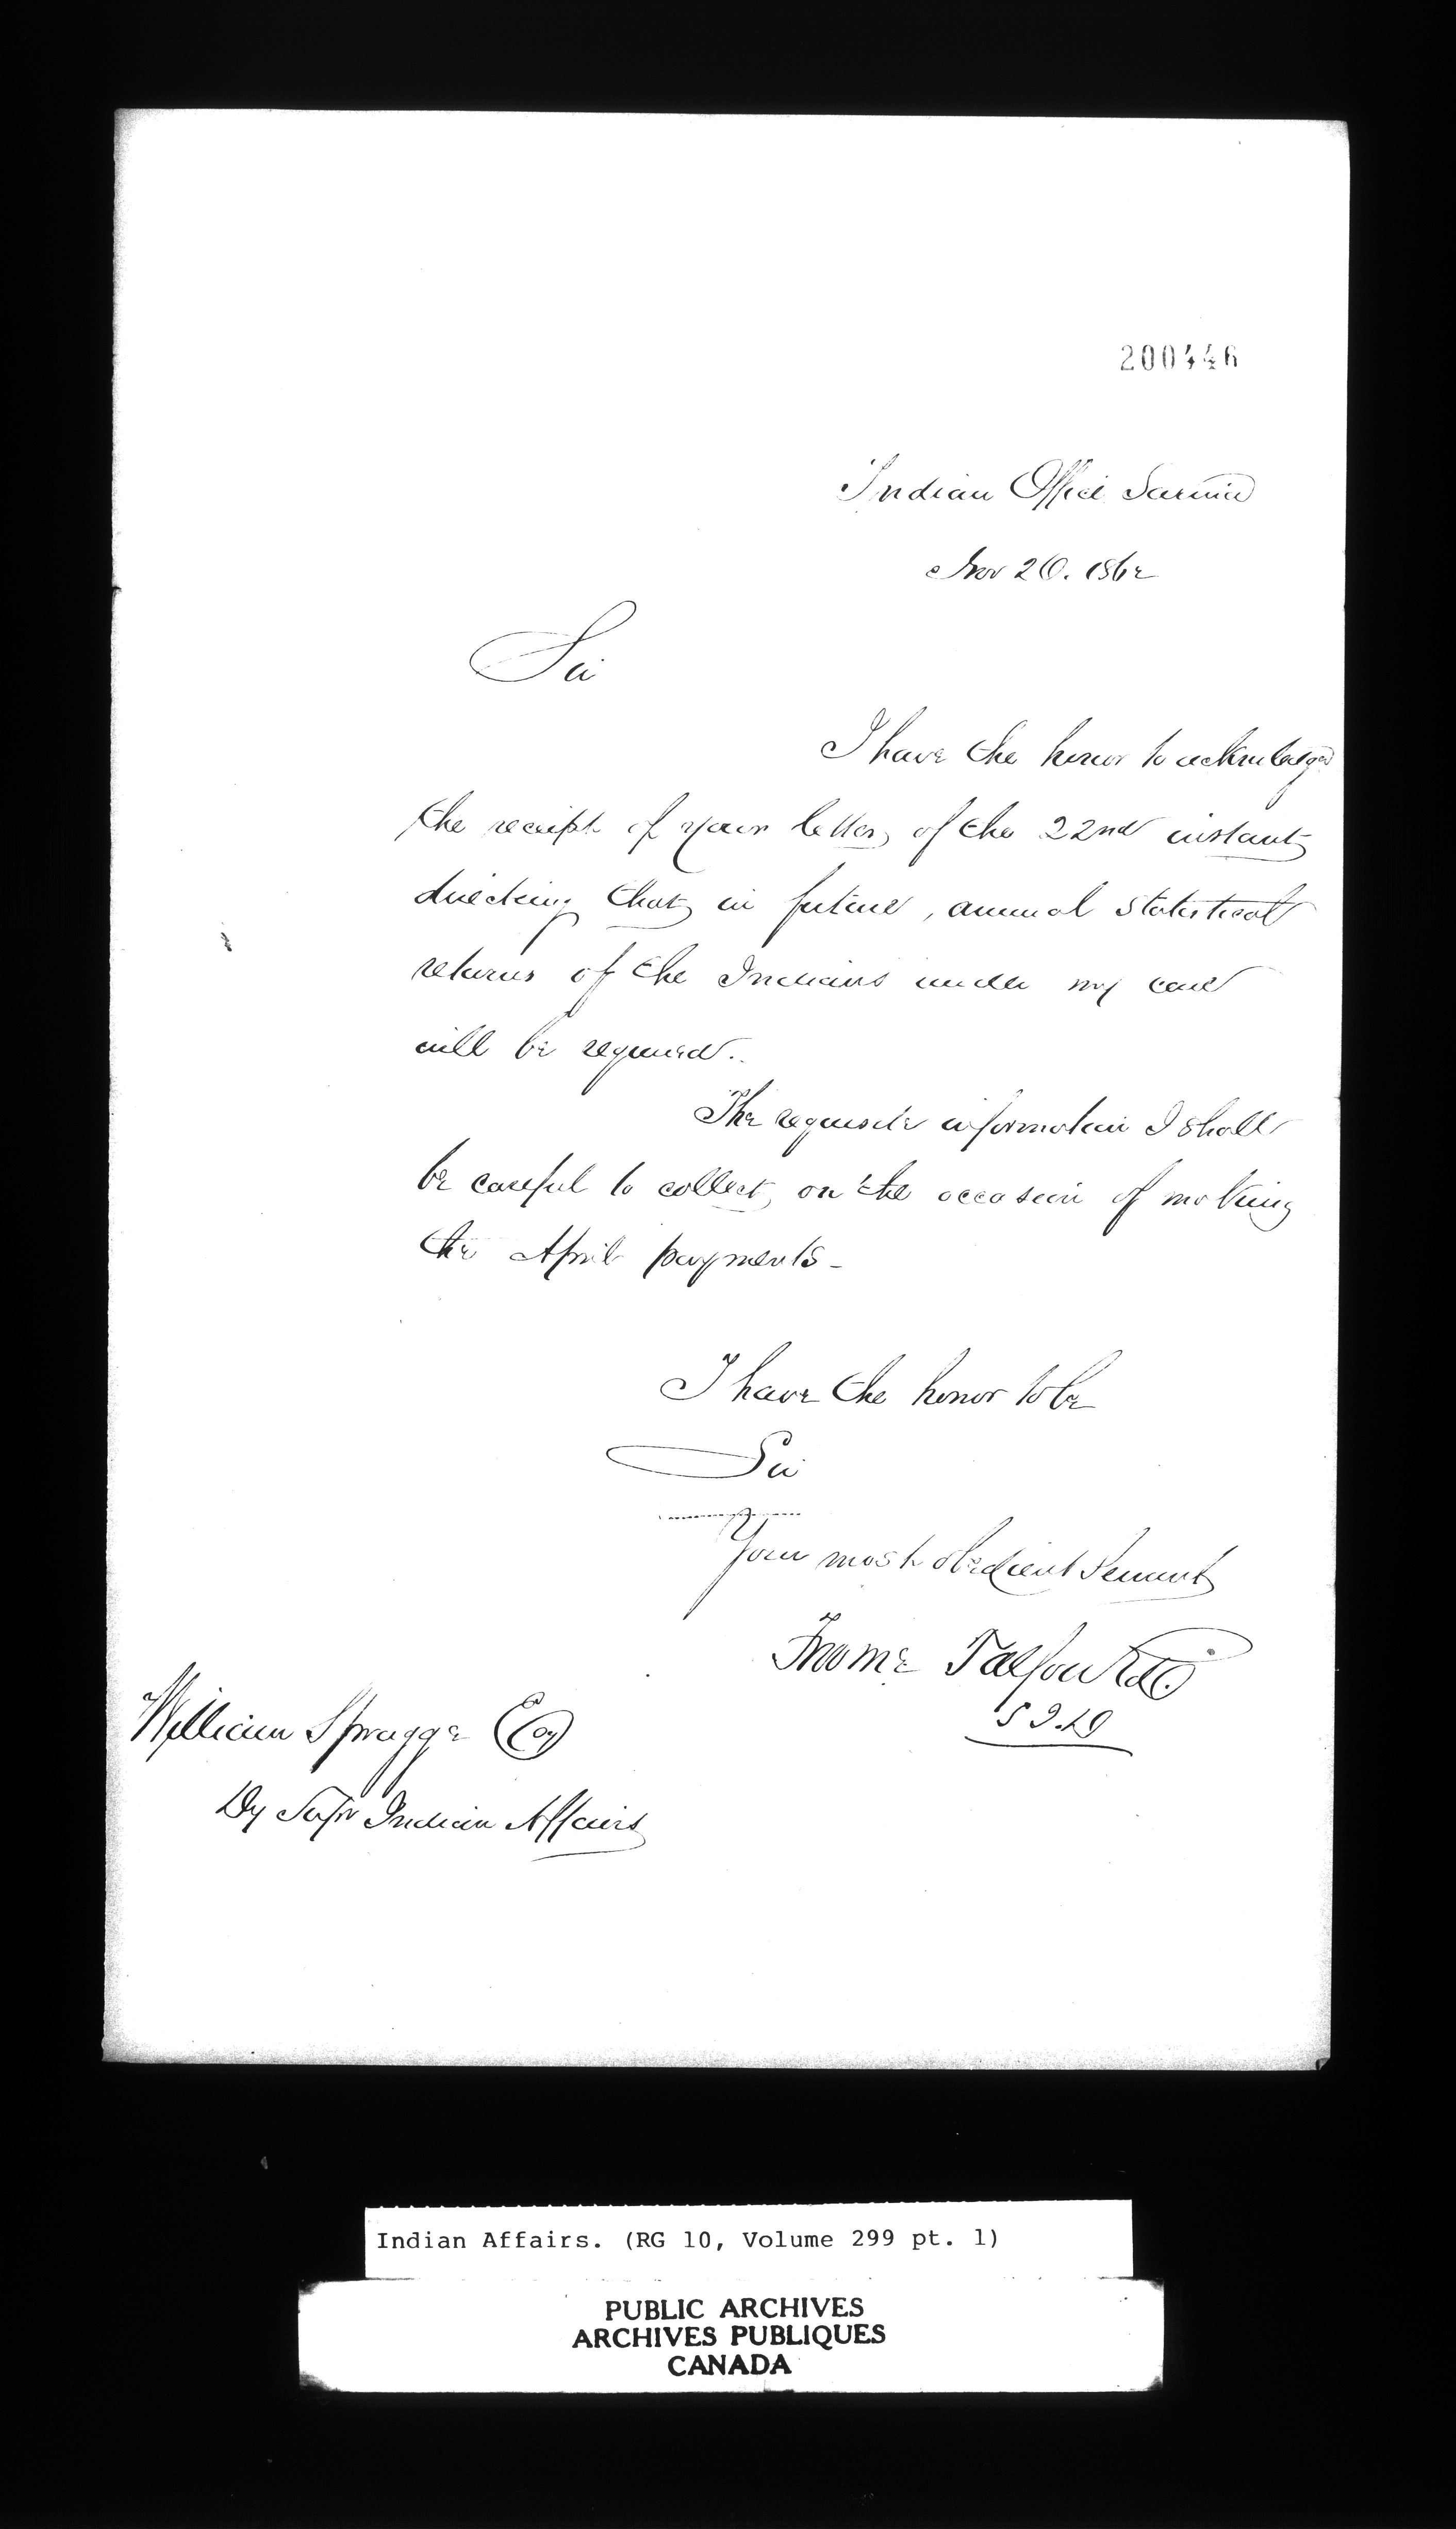 200446
Indian Office Sarnia
Nov 26. 1862
Sir
I have the honor to acknowledge
the receipt of your letter, of the 22nd instant,
directing that, in future, annual statistical
returns of the Indians under my care
will be required.
The requisite information I shall
be careful to collect, on the occasion of making
the April payments_
I have the honor to be
Sir
Your most obedient Servant
Froome Talfourd
William Spragge Esq
Dy Supr Indian Affairs
Indian Affairs. (RG 10, Volume 299 pt. 1)
PUBLIC ARCHIVES
ARCHIVES PUBLIQUES
CANADA